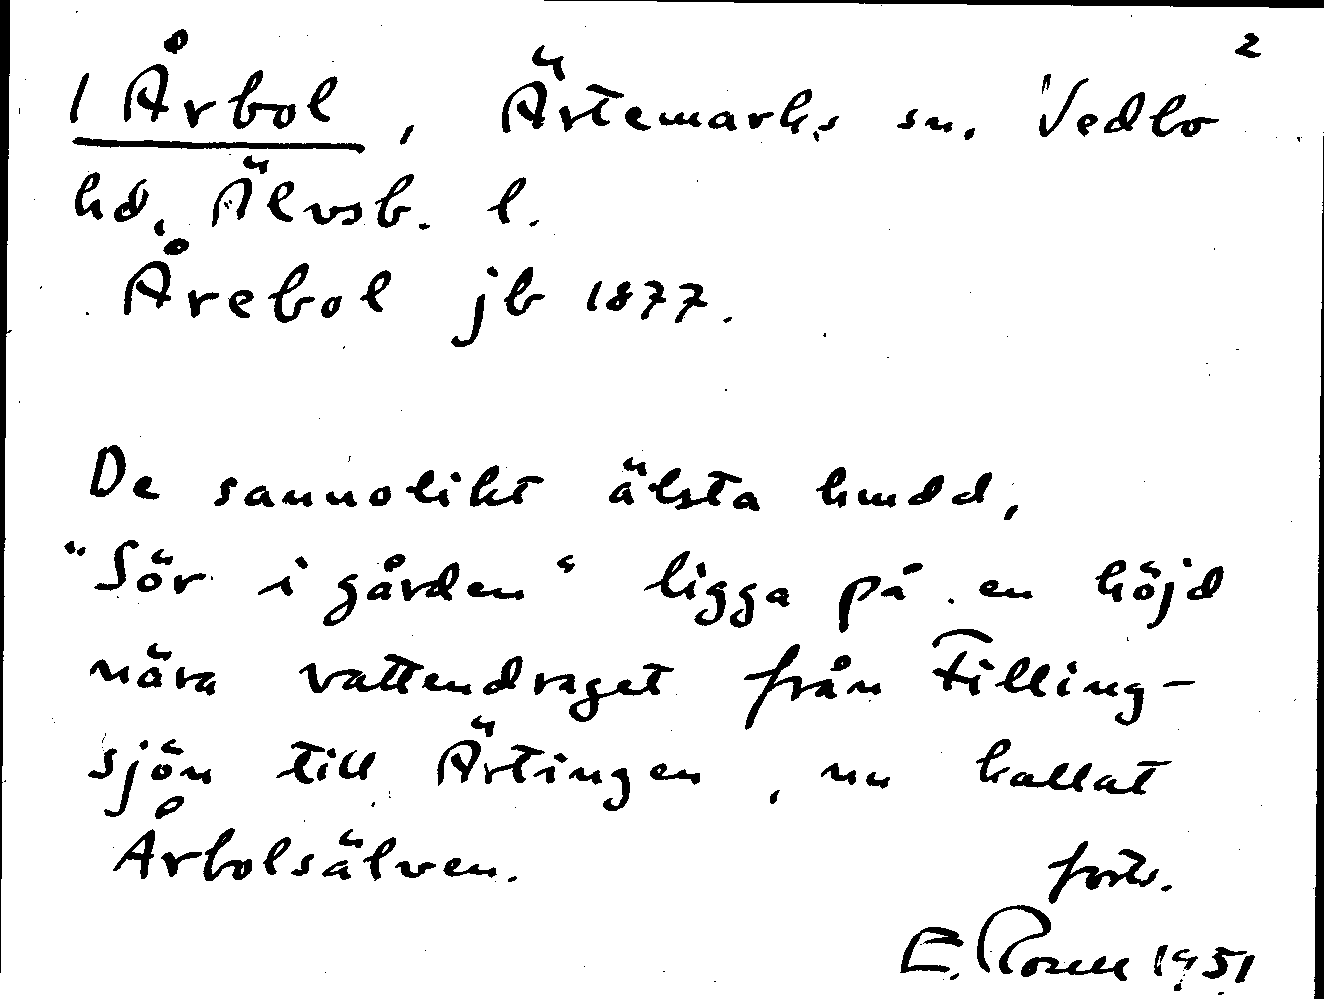 2
1 Årbol, Ärtemarks sn. Vedbo
hd. Älvsb. l.
Årebol jb 1877.
De sannolikt älsta hmdd,
"Sör i gården" ligga på en höjd
nära vattendraget från Filling-
sjön till Ärtingen, nu kallat
Årbolsälven. forts.
E. 1951